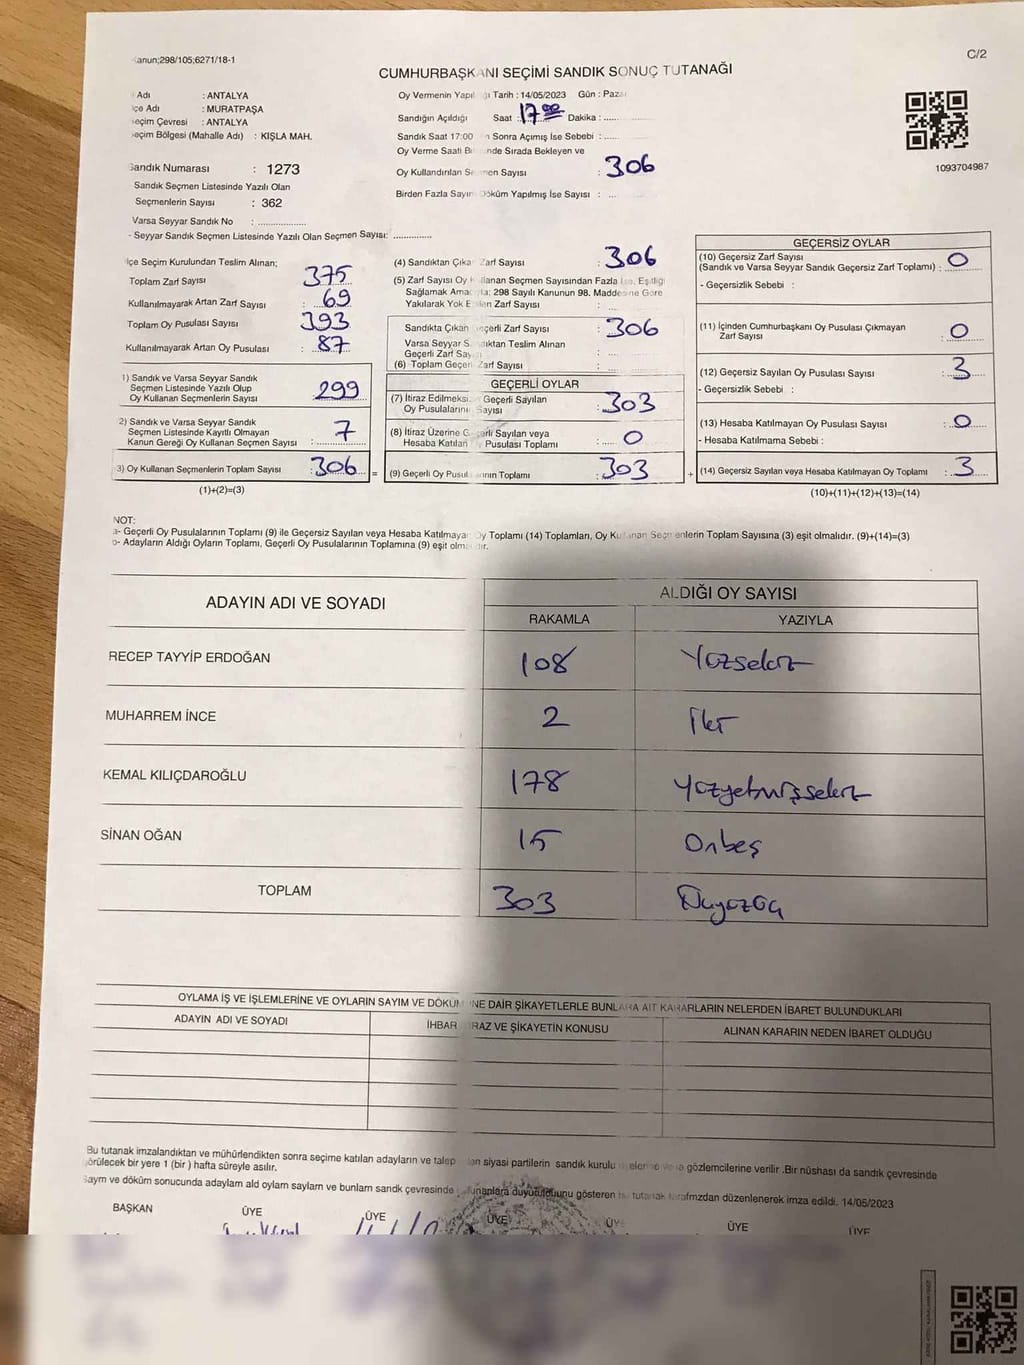 Kanun;298/105;6271/18-1
C/2
CUMHURBAŞKANI SEÇİMİ SANDIK SONUÇ TUTANAĞI
Adı : ANTALYA
İlçe Adı : MURATPAŞA
Seçim Çevresi : ANTALYA
Seçim Bölgesi (Mahalle Adı) : KIŞLA MAH.
Sandık Numarası : 1273
Sandık Seçmen Listesinde Yazılı Olan
Seçmenlerin Sayısı : 362
Varsa Seyyar Sandık No : ..................
- Seyyar Sandık Seçmen Listesinde Yazılı Olan Seçmen Sayısı: ..............
Oy Vermenin Yapıldığı Tarih : 14/05/2023 Gün : Pazar
Sandığın Açıldığı Saat : 17 00 Dakika : ......
Sandık Saat 17:00 Sonra Açımış İse Sebebi : .....
Oy Verme Saati Bitiminde Sırada Bekleyen ve
Oy Kullandırılan Seçmen Sayısı : 306
Birden Fazla Sayım Döküm Yapılmış İse Sayısı : ...
1093704987
İlçe Seçim Kurulundan Teslim Alınan;
Toplam Zarf Sayısı : 375
Kullanılmayarak Artan Zarf Sayısı : 69
Toplam Oy Pusulası Sayısı : 393
Kullanılmayarak Artan Oy Pusulası : 87
1) Sandık ve Varsa Seyyar Sandık
Seçmen Listesinde Yazılı Olup
Oy Kullanan Seçmenlerin Sayısı : 299
2) Sandık ve Varsa Seyyar Sandık
Seçmen Listesinde Kayıtlı Olmayan
Kanun Gereği Oy Kullanan Seçmen Sayısı : 7
3) Oy Kullanan Seçmenlerin Toplam Sayısı : 306 =
(1)+(2)=(3)
(4) Sandıktan Çıkan Zarf Sayısı : 306
(5) Zarf Sayısı Oy Kullanan Seçmen Sayısından Fazla İse, Eşitliği
Sağlamak Amacıyla; 298 Sayılı Kanunun 98. Maddesine Göre
Yakılarak Yok Edilen Zarf Sayısı : ....
Sandıkta Çıkan Geçerli Zarf Sayısı : 306
Varsa Seyyar Sandıktan Teslim Alınan
Geçerli Zarf Sayısı : ....
(6) Toplam Geçerli Zarf Sayısı : ....
GEÇERLİ OYLAR
(7) İtiraz Edilmeksizin Geçerli Sayılan
Oy Pusulalarının Sayısı : 303
(8) İtiraz Üzerine Geçerli Sayılan veya
Hesaba Katılan Oy Pusulası Toplamı : 0
(9) Geçerli Oy Pusulalarının Toplamı : 303 +
GEÇERSİZ OYLAR
(10) Geçersiz Zarf Sayısı
(Sandık ve Varsa Seyyar Sandık Geçersiz Zarf Toplamı) : 0
- Geçersizlik Sebebi :
(11) İçinden Cumhurbaşkanı Oy Pusulası Çıkmayan
Zarf Sayısı : 0
(12) Geçersiz Sayılan Oy Pusulası Sayısı : 3
- Geçersizlik Sebebi :
(13) Hesaba Katılmayan Oy Pusulası Sayısı : 0
- Hesaba Katılmama Sebebi :
(14) Geçersiz Sayılan veya Hesaba Katılmayan Oy Toplamı : 3
(10)+(11)+(12)+(13)=(14)
NOT:
a- Geçerli Oy Pusulalarının Toplamı (9) ile Geçersiz Sayılan veya Hesaba Katılmayan Oy Toplamı (14) Toplamları, Oy Kullanan Seçmenlerin Toplam Sayısına (3) eşit olmalıdır. (9)+(14)=(3)
b- Adayların Aldığı Oyların Toplamı, Geçerli Oy Pusulalarının Toplamına (9) eşit olmalıdır.
ADAYIN ADI VE SOYADI
ALDIĞI OY SAYISI
RAKAMLA YAZIYLA
RECEP TAYYİP ERDOĞAN 108 Yüzsekiz
MUHARREM İNCE 2 İki
KEMAL KILIÇDAROĞLU 178 Yüzyetmişsekiz
SİNAN OĞAN 15 Onbeş
TOPLAM 303 Üçyüzüç
OYLAMA İŞ VE İŞLEMLERİNE VE OYLARIN SAYIM VE DÖKÜMÜNE DAİR ŞİKAYETLERLE BUNLARA AİT KARARLARIN NELERDEN İBARET BULUNDUKLARI
ADAYIN ADI VE SOYADI İHBAR İTİRAZ VE ŞİKAYETİN KONUSU ALINAN KARARIN NEDEN İBARET OLDUĞU
Bu tutanak imzalandıktan ve mühürlendikten sonra seçime katılan adayların ve talep eden siyasi partilerin sandık kurulu üyelerine veya gözlemcilerine verilir .Bir nüshası da sandık çevresinde
görülecek bir yere 1 (bir ) hafta süreyle asılır.
Sayım ve döküm sonucunda adayların aldı oyların sayların ve bunların sandk çevresinde bulunanlara duyutulduunu gösteren bu tutanak tarafmzdan düzenlenerek imza edildi. 14/05/2023
BAŞKAN ÜYE ÜYE ÜYE ÜYE ÜYE ÜYE